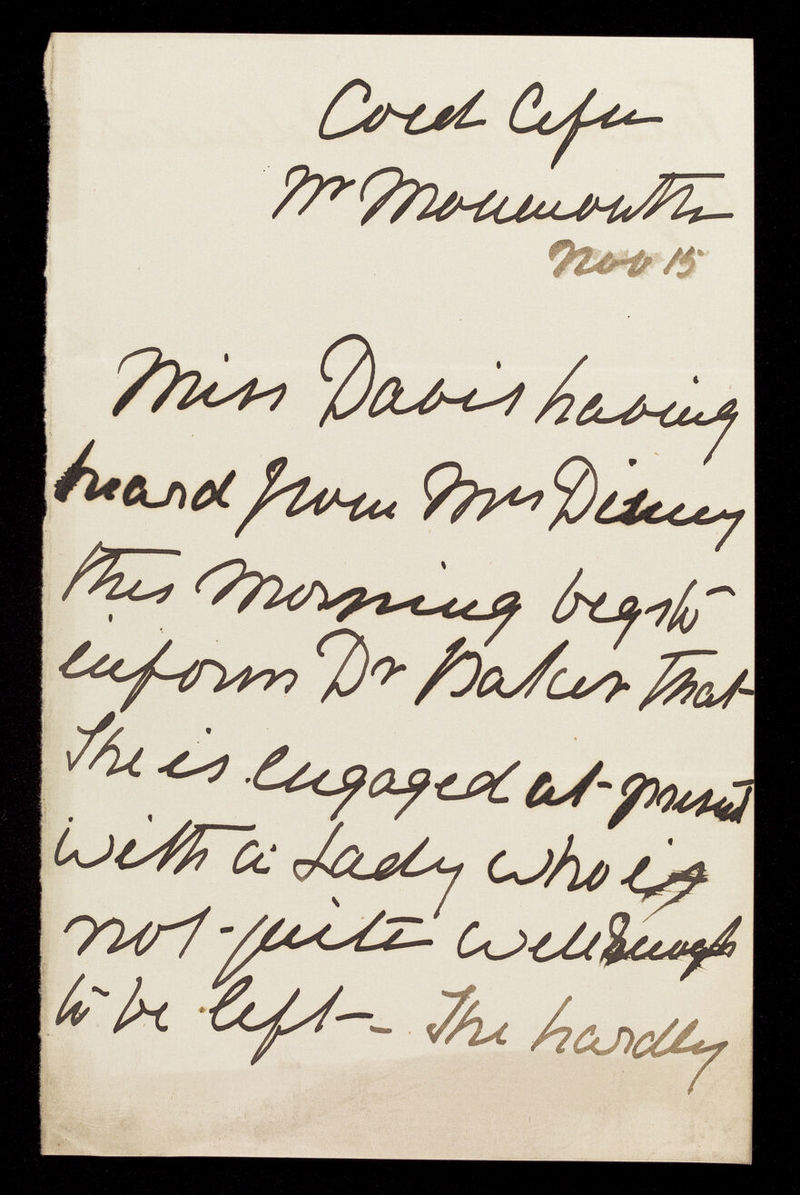 Coed Cefn
Nr Monmouth
Nov 15
Miss Davis having
heard from Mrs Disney
this morning begs to
inform Dr Baker that
She is engaged at present
with a Lady who is
not quite well Enough
to be left - She hardly